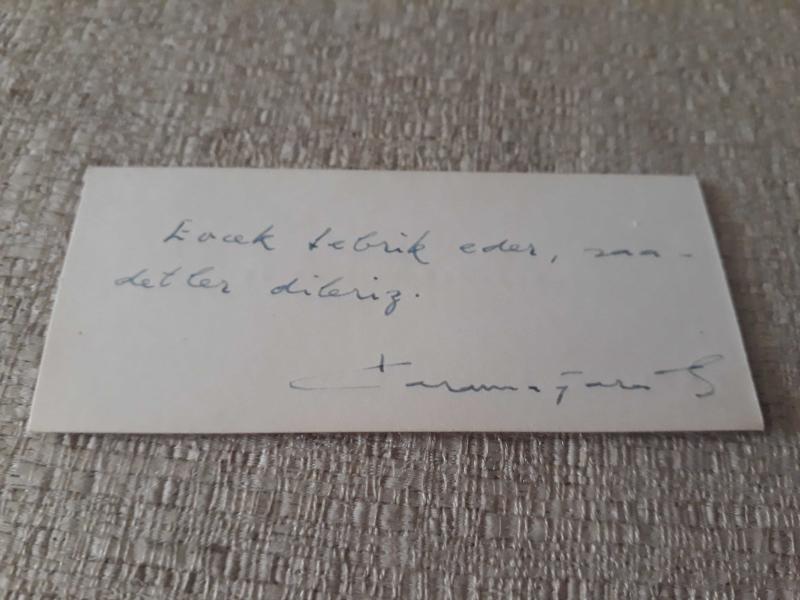 Evcek tebrik eder, saa-
detler dileriz.